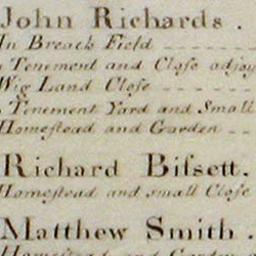 John Richards .
In Breach Field
Tenement and Close adjoy
Wig Land Close
Tenement Yard and Small
Homestead and Garden
Richard Bifsett.
Homestead and small Close
Matthew Smith .
Homestead and Garden